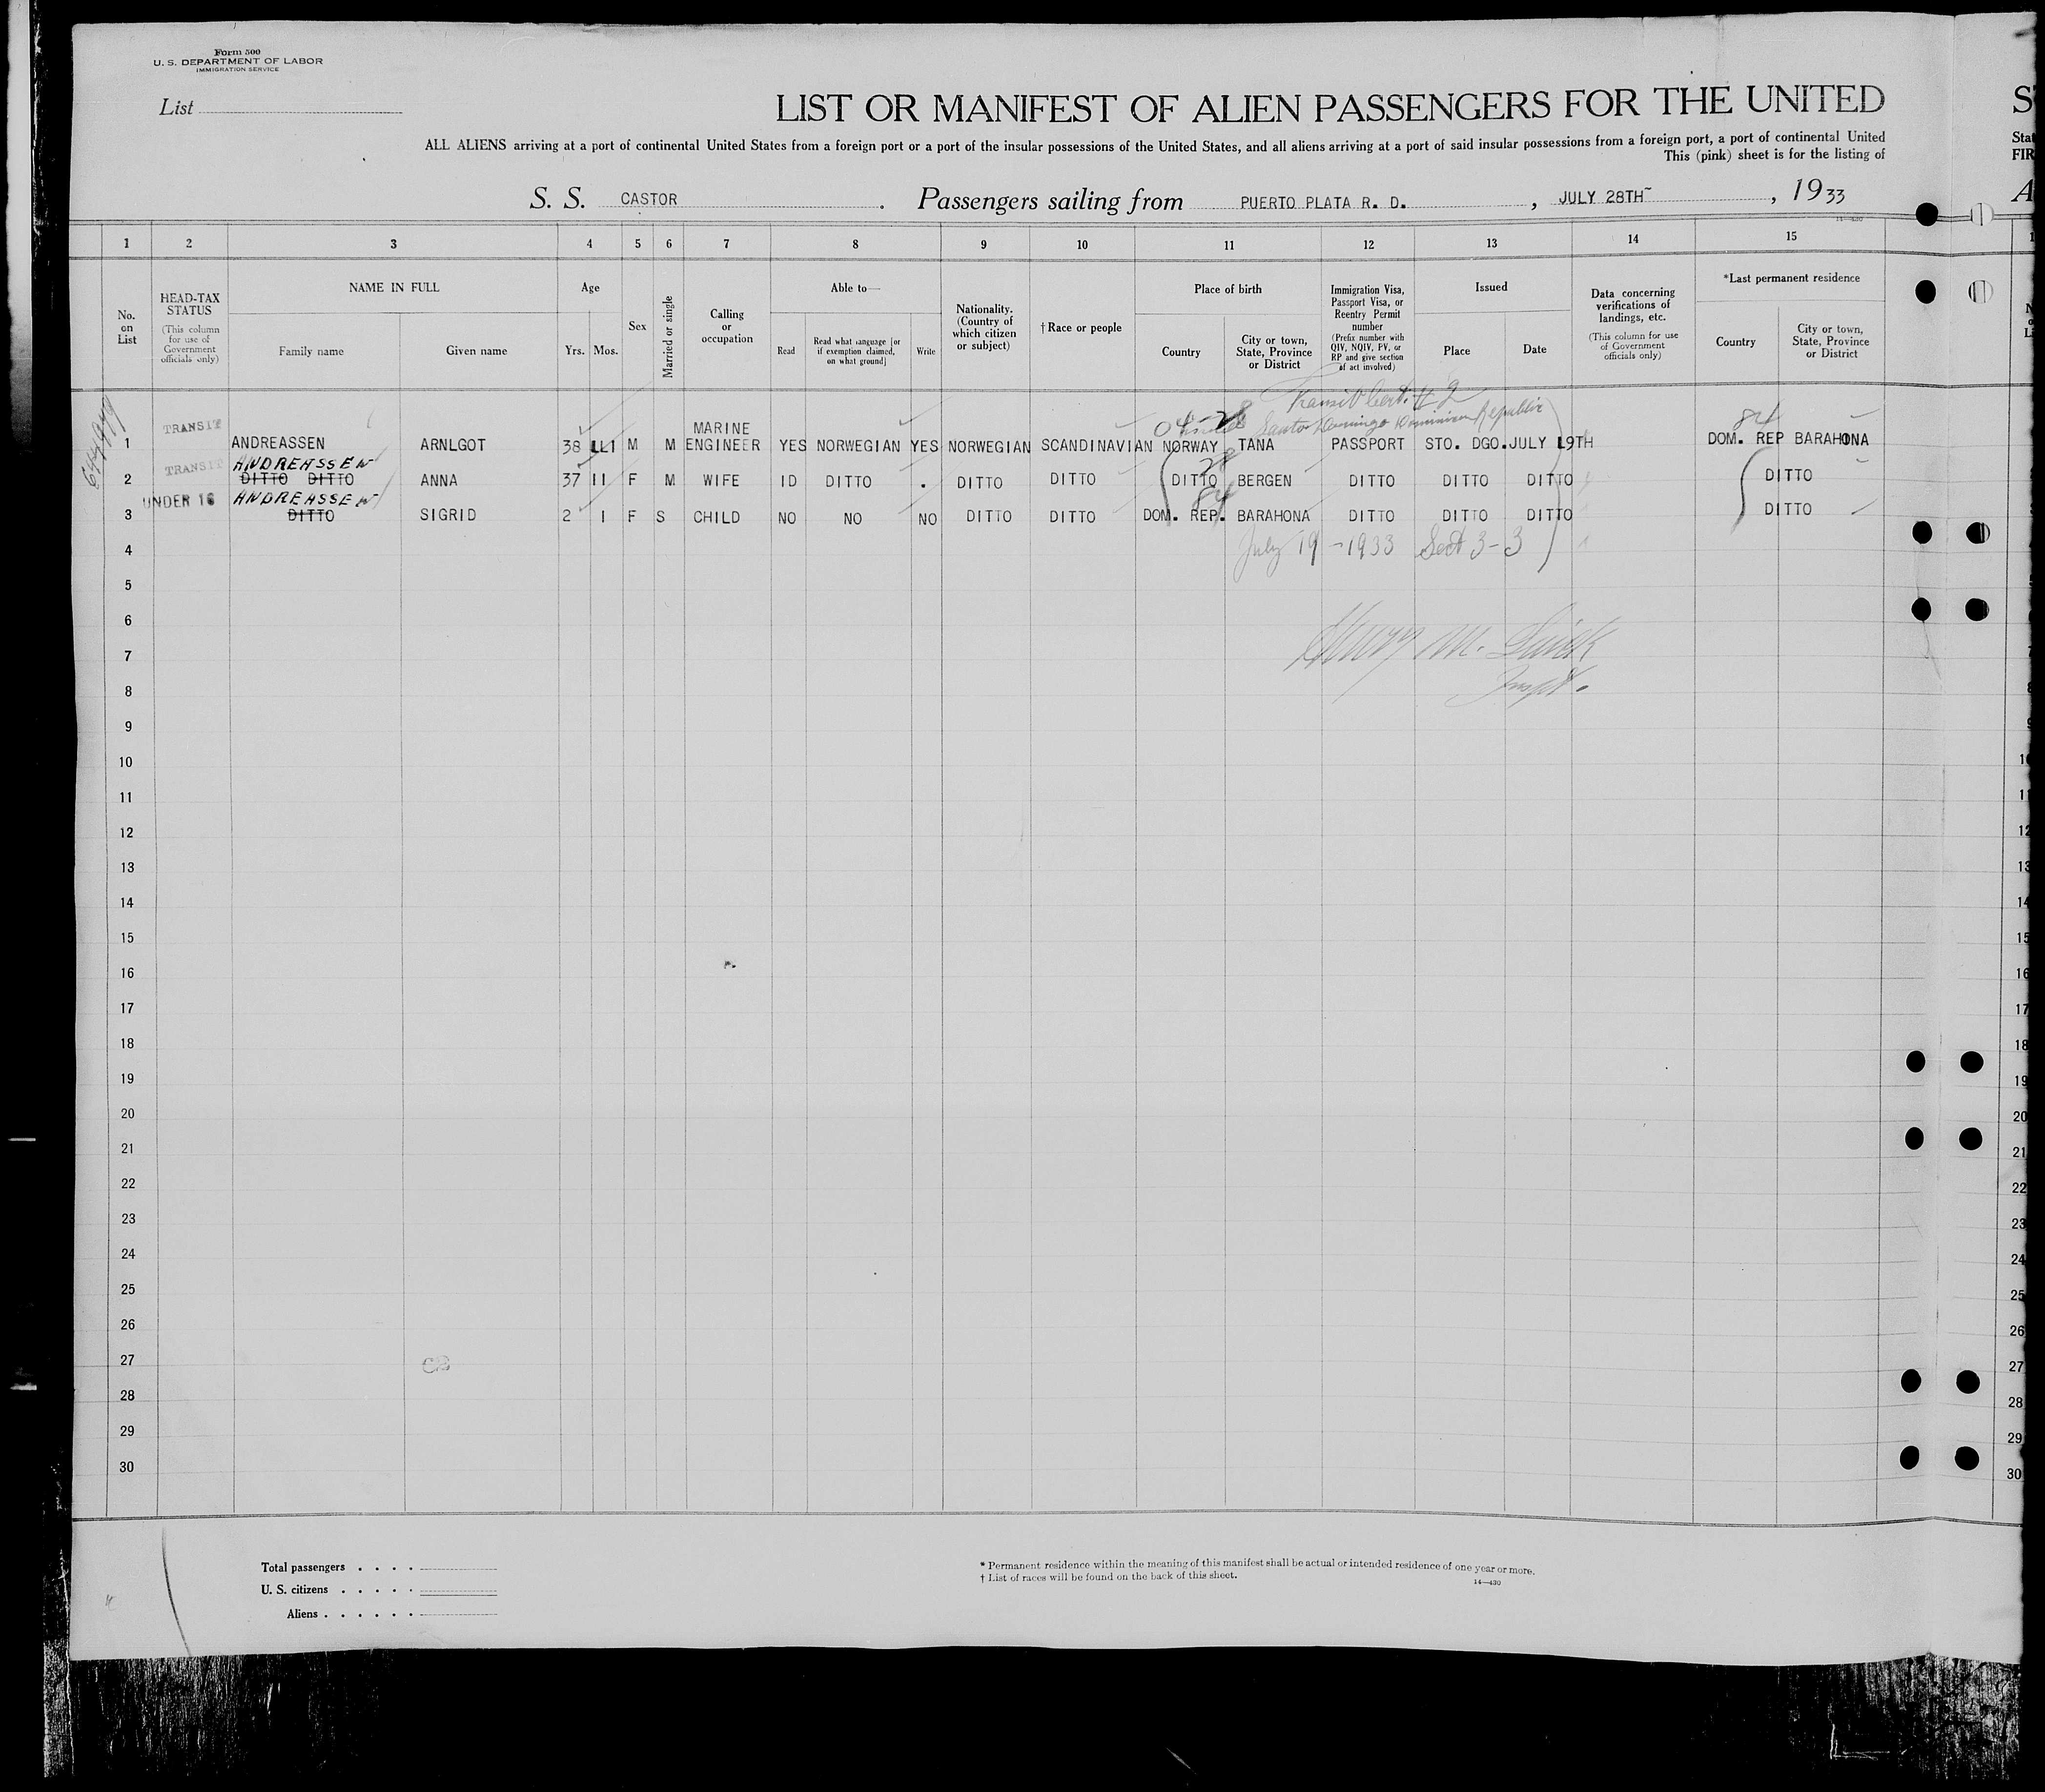 Form 500
U. S. DEPARTMENT OF LABOR
IMMIGRATION SERVICE
List
LIST OR MANIFEST OF ALIEN PASSENGERS FOR THE UNITED
ALL ALIENS arriving at a port of continental United States from a foreign port or a port of the insular possessions of the United States, and all aliens arriving at a port of said insular possessions from a foreign port, a port of continental United
This (pink) sheet is for the listing of
S. S. CASTOR . Passengers sailing from PUERTO PLATA R. D. , JULY 28TH , 1933
14—430
1 2 3 4 5 6 7 8 9 10 11 12 13 14 15
No. on List
HEAD-TAX STATUS (This column for use of Government officials only)
NAME IN FULL
Family name Given name
Age
Yrs. Mos.
Sex
Married or single
Calling or occupation
Able to—
Read Read what language [or if exemption claimed, on what ground] Write
Nationality. (Country of which citizen or subject)
† Race or people
Place of birth
Country City or town, State, Province or District
Immigration Visa, Passport Visa, or Reentry Permit number (Prefix number with QIV, NQIV, PV, or RP and give section of act involved)
Issued
Place Date
Data concerning verifications of landings, etc. (This column for use of Government officials only)
*Last permanent residence
Country City or town, State, Province or District
Transit Cert. # 2
Santo Domingo Dominican Republic
28 84
1 TRANSIT ANDREASSEN ARNLGOT 38 11 M M MARINE ENGINEER YES NORWEGIAN YES NORWEGIAN SCANDINAVIAN NORWAY TANA PASSPORT STO. DGO. JULY 19TH DOM. REP BARAHONA
28
2 TRANSIT ANDREASSEN DITTO DITTO ANNA 37 11 F M WIFE ID DITTO . DITTO DITTO DITTO BERGEN DITTO DITTO DITTO DITTO
84
3 UNDER 16 ANDREASSEN DITTO SIGRID 2 1 F S CHILD NO NO NO DITTO DITTO DOM. REP. BARAHONA DITTO DITTO DITTO DITTO
July 19 - 1933 Sect 3-3
4
5
6
7
Inspt.
8
9
10
11
12
13
14
15
16
17
18
19
20
21
22
23
24
25
26
27
28
29
30
Total passengers . . . .
U. S. citizens . . . . .
Aliens . . . . . .
* Permanent residence within the meaning of this manifest shall be actual or intended residence of one year or more.
† List of races will be found on the back of this sheet.
14—430